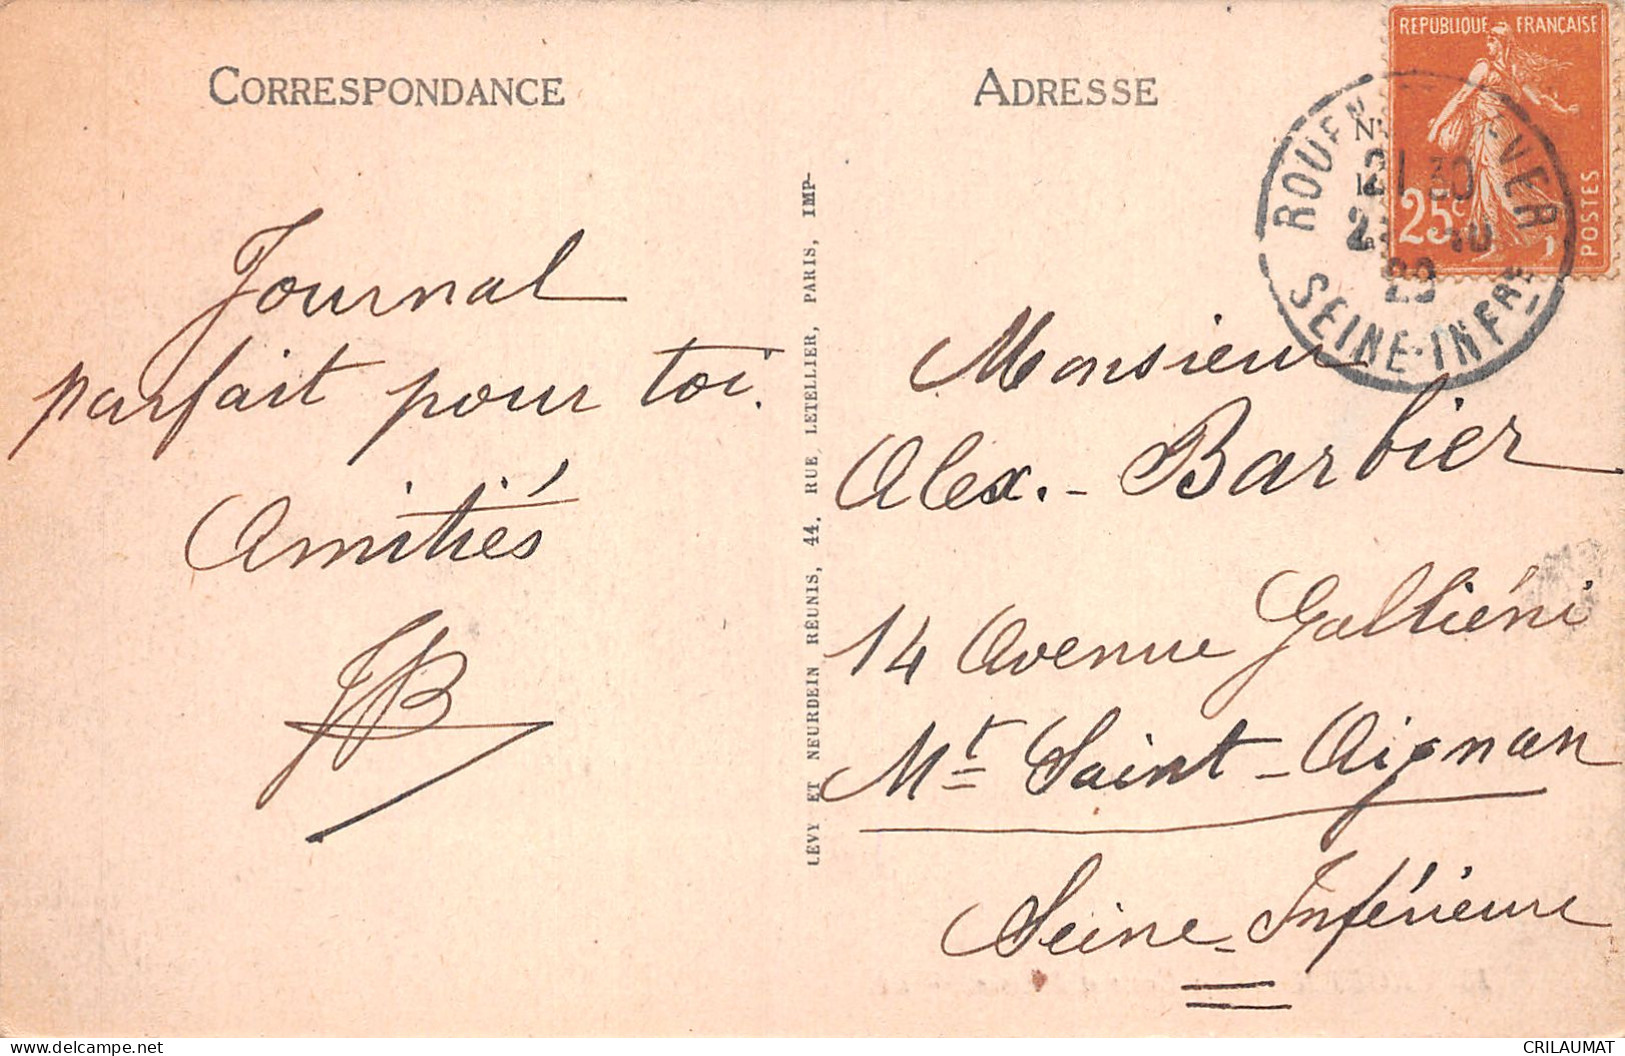 CORRESPONDANCE
Journal
parfait pour toi.
Amitiés
JB
LÉVY ET NEURDEIN RÉUNIS, 44, RUE LETELLIER, PARIS, IMP-
ADRESSE
REPUBLIQUE FRANÇAISE
25c
POSTES
ROUEN
VER
21 30
SEINE-INFRE
Monsieur
Alex. - Barbier
14 Avenue Galliéni
Mt Saint-Aignan
Seine-Inférieure
CRILAUMAT